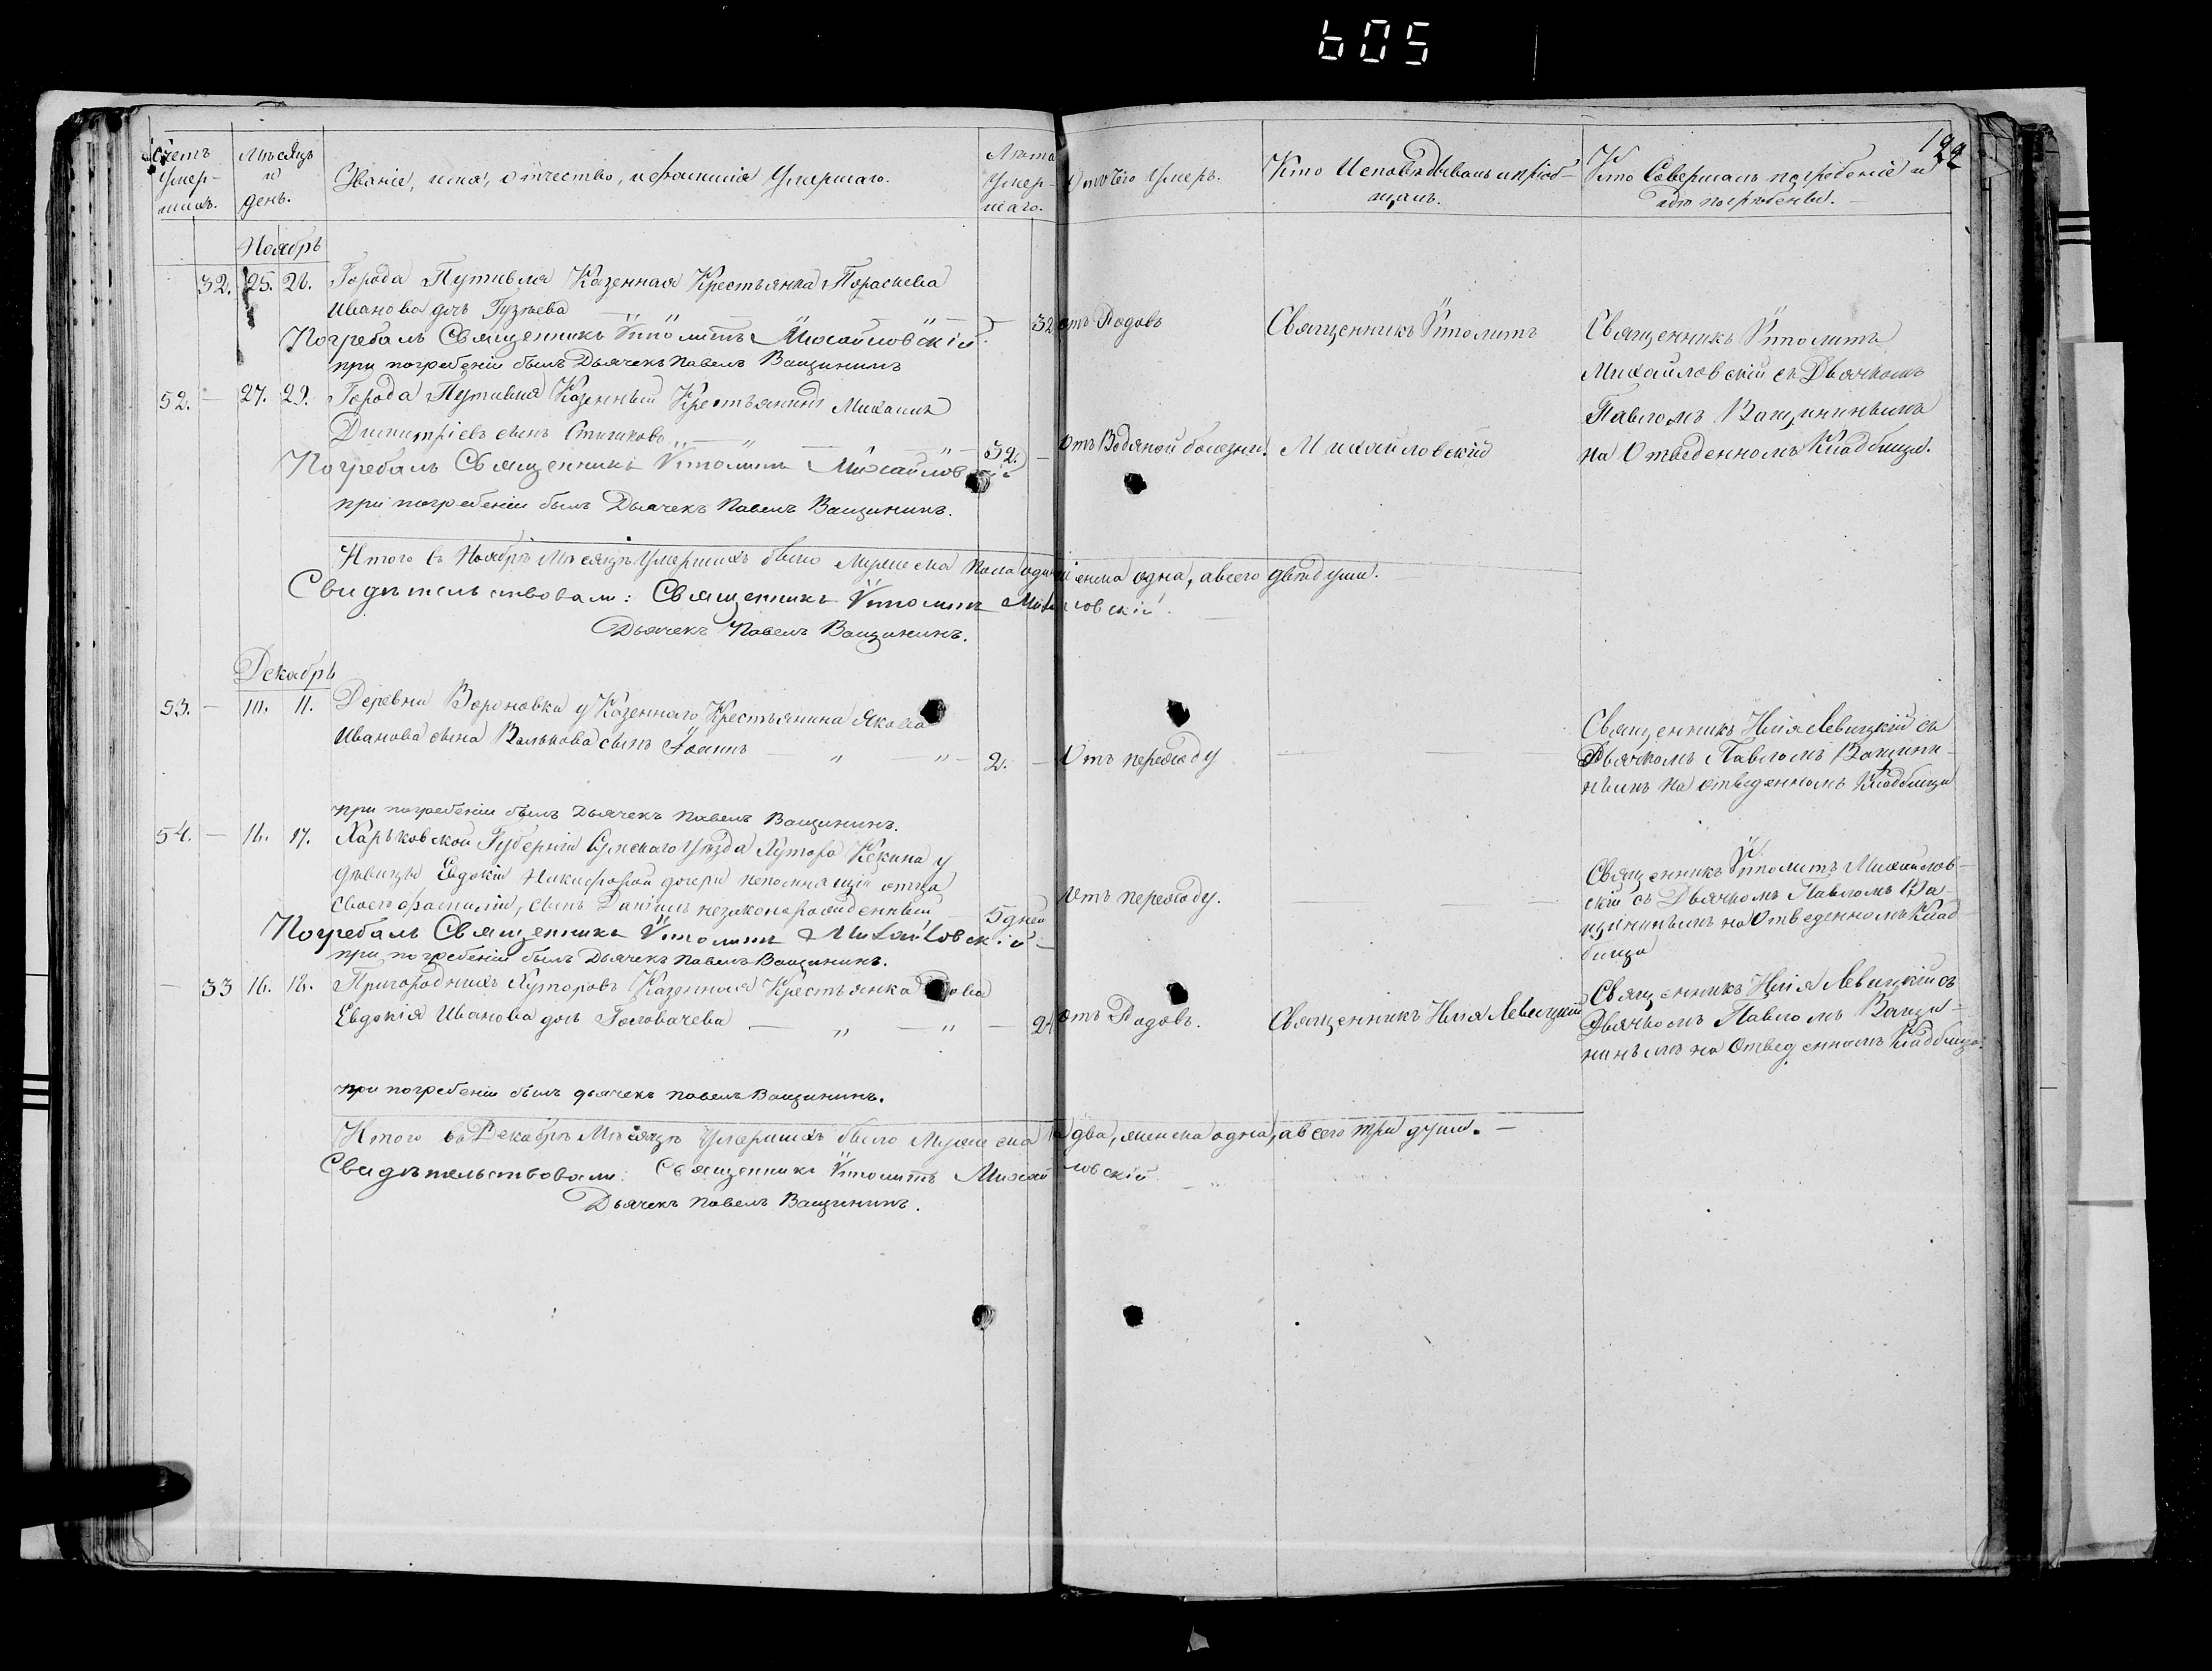 605
122
Счетъ умер-шихъ.
Мѣсяцъ и день.
Званіе, имя, отчество, и фамилія Умершаго.
Лѣта Умер-шаго.
Отъ чего Умеръ.
Кто Исповѣдывалъ и пріоб-щалъ.
Кто Совершалъ погребеніе и гдѣ погребены.
Ноябрь
32. 25. 26. Города Путивля Казенная Крестьянка Параскева
Иванова дочь Гузѣева — 32
отъ Родовъ
Священникъ Ѵпполитъ
Священникъ Ѵпполитъ
Погребалъ Священникъ Ѵпполитъ Михайловскій.
при погребеніи былъ Дьячекъ Павелъ Ващининъ
Михайловскій съ Дьячкомъ
52. — 27. 29. Города Путивля Казенный Крестьянинъ Михаилъ
Павломъ Ващининымъ
Димитріевъ сынъ — " — " 52. —
Отъ Водяной болезни.
Михайловскій
на Отведенномъ Кладбищѣ.
Погребалъ Священникъ Ѵпполитъ Михайловскій
при погребеніи былъ Дьячекъ Павелъ Ващининъ.
Итого въ Ноябрѣ Мѣсяцѣ Умершихъ было Мужеска пола одинъ женска одна, а всего двѣ души.
Свидѣтельствовали: Священникъ Ѵпполитъ Михайловскій.
Дьячекъ Павелъ Ващининъ.
Декабрь
53. — 10. 11. Деревни Вороновки у Казеннаго Крестьянина Якова
Иванова сына сынъ Іоаннъ — " — " — 2. —
Отъ переходу
—
Священникъ Илія Левицкій съ
Дьячкомъ Павломъ Ващини-
нымъ на отведенномъ Кладбищѣ
при погребеніи былъ Дьячекъ Павелъ Ващининъ.
54. — 16. 17. Харьковской Губерніи Сумскаго Уѣзда Хутора Кекина у
дѣвицы Евдокіи Никифоровой дочери непомнящей отца
своего фамиліи, сынъ Даніилъ незаконорожденный — 5 дней
Отъ переходу.
— — —
Священникъ Ѵпполитъ Михайлов-
скій съ Дьячкомъ Павломъ Ва-
щининымъ на Отведенномъ Клад-
бищѣ
Погребалъ Священникъ Ѵпполитъ Михайловскій —
при погребеніи былъ Дьячекъ Павелъ Ващининъ.
— 33 16. 18. Пригородныхъ Хуторовъ Казенная Крестьянка
Евдокія Иванова дочь Головачева — " — " — 24
отъ Родовъ.
Священникъ Илія Левицкій
Священникъ Илія Левицкій съ
Дьячкомъ Павломъ Ващи-
нинымъ на Отведенномъ Кладбищѣ.
при погребеніи былъ дьячекъ Павелъ Ващининъ.
Итого въ Декабрѣ Мѣсяцѣ Умершихъ было Мужеска два, женска одна, а всего три души. —
Свидѣтельствовали: Священникъ Ѵпполитъ Михайловскій
Дьячекъ Павелъ Ващининъ.